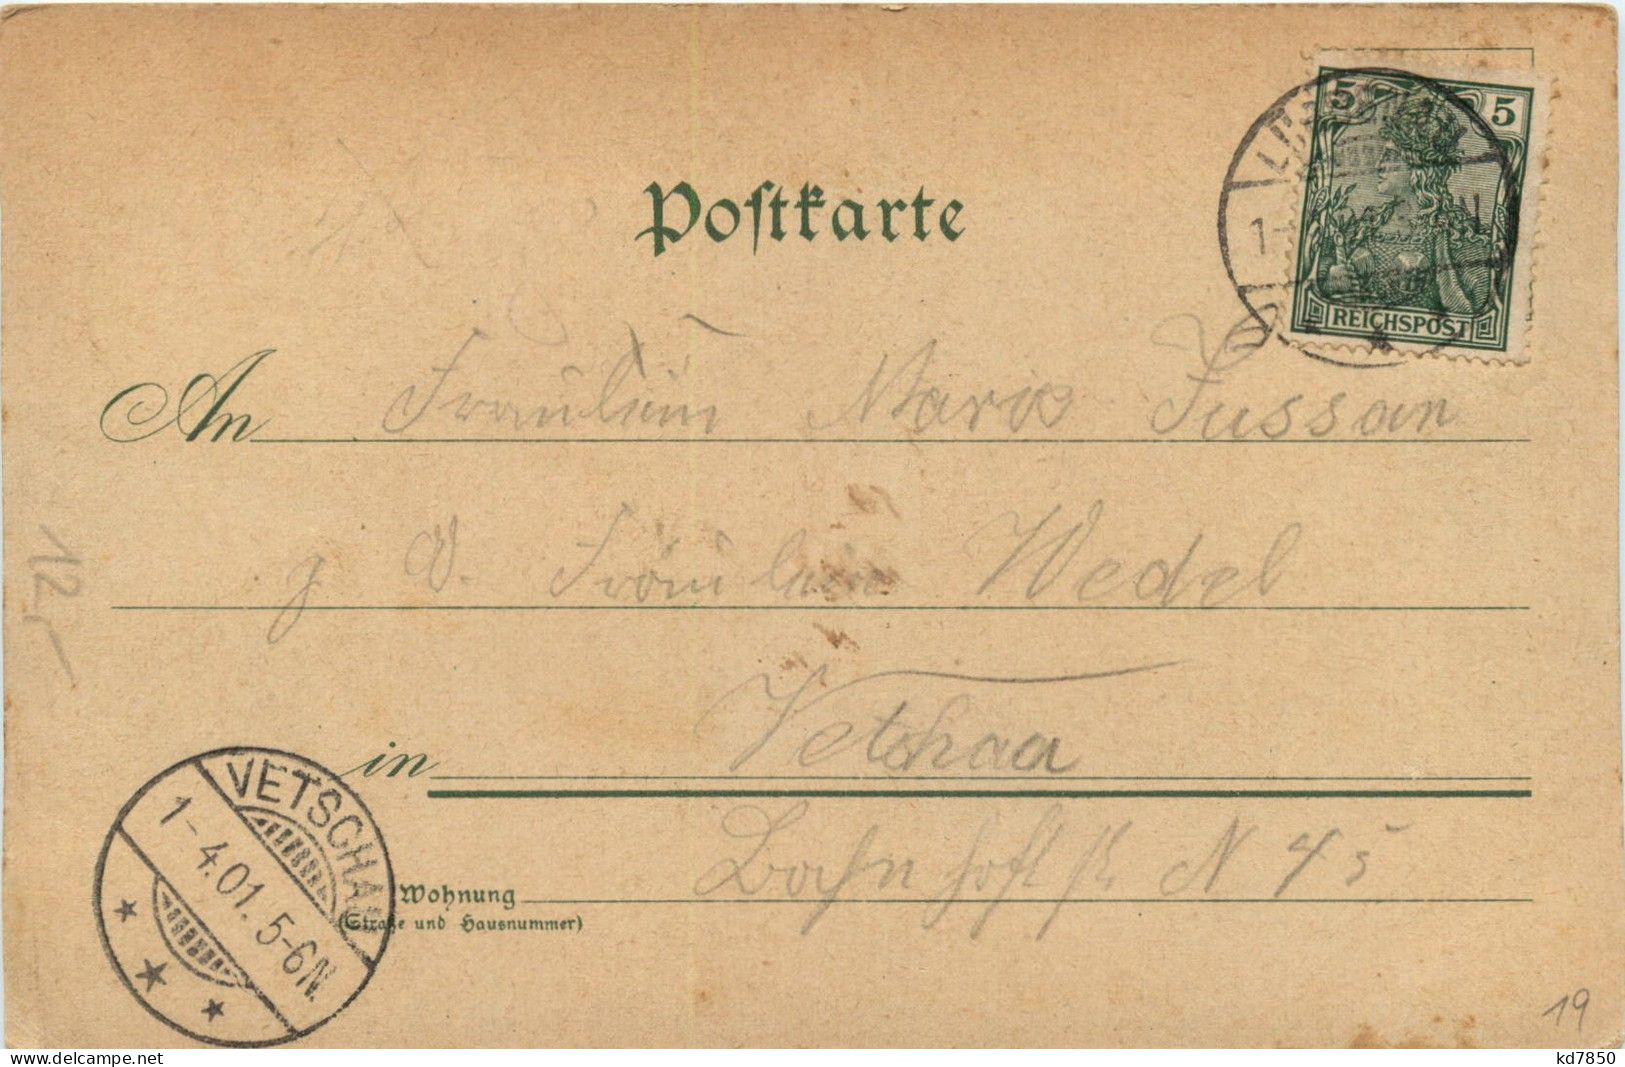 Postkarte
5 5
REICHSPOST
An Fräulein Marie Jussan
Fräulein Wedel
in Vetschau
Wohnung Bahnhofstr. N 45
(Straße und Hausnummer)
VETSCHAU
1-4.01. 5-6N.
12,-
19
kd7850
www.delcampe.net